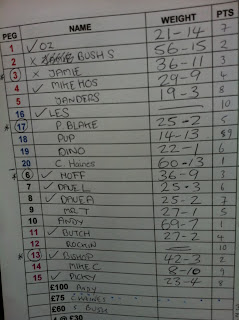 PEG NAME WEIGHT PTS
1 ✓ OZ 21-14 7
2 X BUSH S 56-15 2
* 3 X JAMIE 36-11 3
4 ✓ MIKE HOS 29-9 4
5 SANDERS 19-3 8
16 ✓ LES — 10
* 17 P. BLAKE 25-2 5
18 PUP 14-13 9
19 DINO 22-1 6
20 C. Haines 60-13 1
* 6 ✓ HUFF 36-9 3
7 ✓ DAVE L 25-3 6
8 ✓ DAVE A 25-2 7
9 MR T 27-1 5
10 ANDY 69-7 1
11 ✓ BUTCH 27-2 4
12 ROCHIN — 10
* 13 ✓ BISHOP 42-3 2
14 MIKE C 8-10 9
15 ✓ PICKSY 23-4 8
£100 ANDY
£75 CHAINES
£60 S BUSH